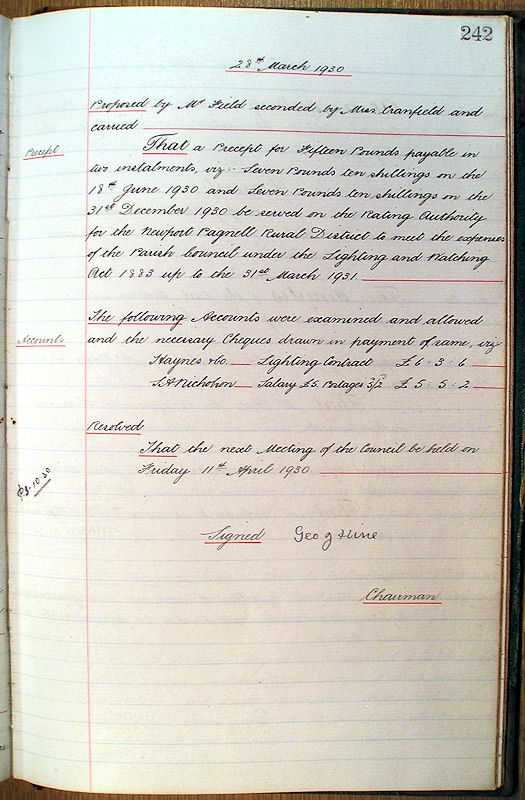 242
28th March 1930
Proposed by Mr Field seconded by Mrs Cranfield and
carried
Precept
That a Precept for Fifteen Pounds payable in
two instalments, viz:- Seven Pounds ten shillings on the
18th June 1930 and Seven Pounds ten shillings on the
31st December 1930 be served on the Rating Authority
for the Newport Pagnell Rural District to meet the expenses
of the Parish Council under the Lighting and Watching
Act 1883 up to the 31st March 1931.
The following Accounts were examined and allowed
Accounts
and the necessary Cheques drawn in payment of same, viz
Haynes & Co. Lighting Contract £6 : 3 : 6
S.A. Nicholson Salary £5. Postages 5/2 £5 : 5 : 2
Resolved
That the next Meeting of the Council be held on
Friday 11th April 1930
Signed Geo J Hine
Chairman